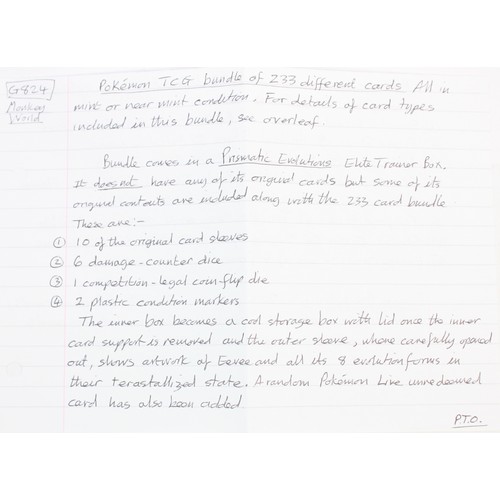 G824
Monkey
World
Pokémon TCG bundle of 233 different cards. All in
mint or near mint condition. For details of card types
included in this bundle, see overleaf.
Bundle comes in a Prismatic Evolutions Elite Trainer Box.
It does not have any of its original cards but some of its
original contents are included along with the 233 card bundle
These are:-
① 10 of the original card sleeves
② 6 damage-counter dice
③ 1 competition-legal coin-flip die
④ 2 plastic condition markers
The inner box becomes a cool storage box with lid once the inner
card support is removed and the outer sleeve, whane carefully opened
out, shows artwork of Eevee and all its 8 evolution forms in
their terastallized state. A random Pokémon Live unredeemed
card has also been added.
P.T.O.